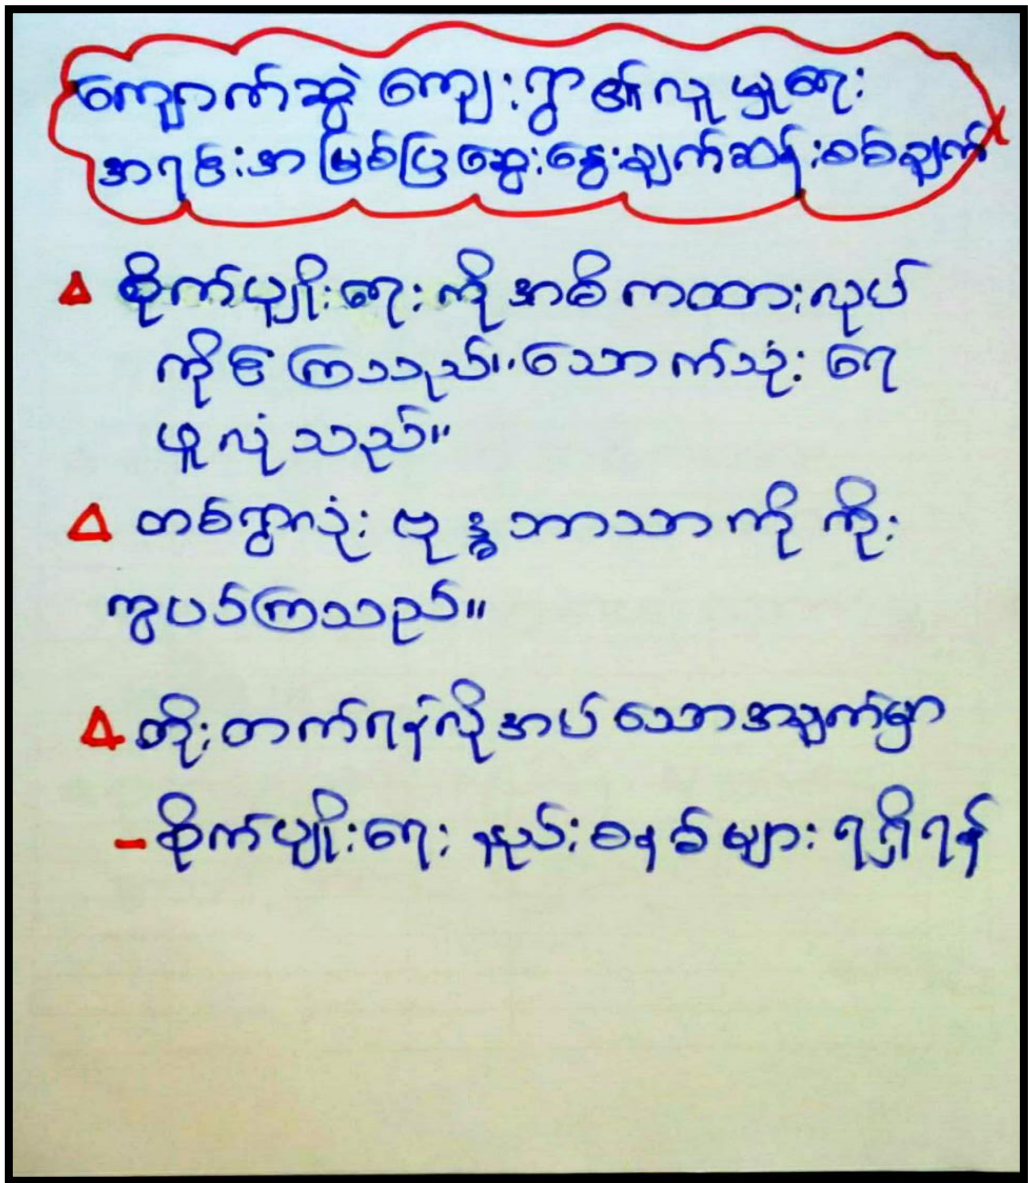 ကျောက်ဆွဲ ကျေးရွာ၏လူမှုရေး
အရင်းအမြစ်ပြဆွေးနွေးချက်ဆန်းစစ်ချက်
Δ စိုက်ပျိုးရေးကို အဓိကထားလုပ်
ကိုင်ကြသည်။ သောက်သုံးရေ
ဖူလုံသည်။
Δ တစ်ရွာလုံး ဗုဒ္ဓဘာသာကို ကိုး
ကွယ်ကြသည်။
Δ တိုးတက်ရန်လိုအပ်သောအချက်မှာ
- စိုက်ပျိုးရေး နည်းစနစ်များ ရရှိရန်